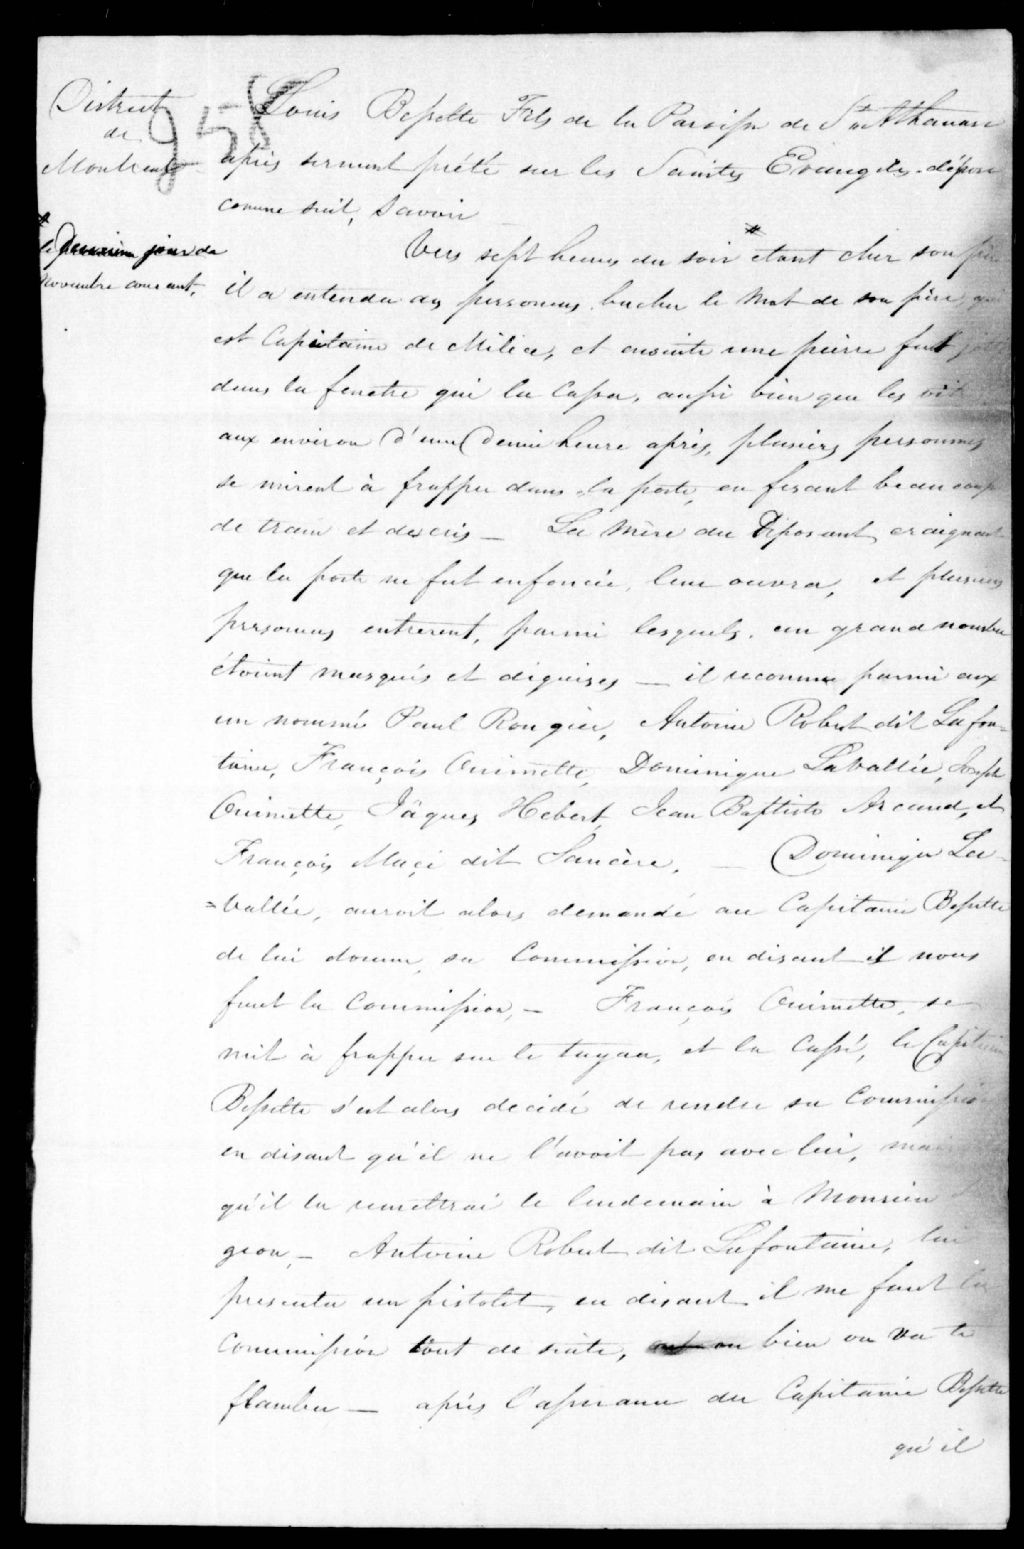 District
de
Montreal
958
Louis Bessette Fils de la Paroisse de St Athanase
après serment prêté sur les Saintes Evangiles dépose
comme suit, Savoir
*
le Deuxième jour de
Novembre courant,
Vers sept heures du soir * etant chez son père
il a entendu des personnes bucher le Mat de son père, qui
est Capitaine de Milice, et ensuite une pierre fut
dans la fenetre qui la cassa, aussi bien que les
aux environ d'une Demie heure après, plusieurs personnes
se mirent à frapper dans la porte, en fesant beaucoup
de train et des cris — La Mère du Déposant, craignant
que la porte ne fut enfoncée, leur ouvra, et plusieurs
personnes entrerent, parmi lesquels un grand nombre
étoient masqués et déguisés — il reconnu parmi eux
un nommé Paul Rougier, Antoine Robert dit Lafon-
taine, François Ouimette, Dominique Lavallée, Joseph
Ouimette, Jâques Hebert, Jean Baptiste Arcand, et
François Maçé dit Sancère, — Dominique La-
=vallée, auroit alors demandé au Capitaine Bessette
de lui donner sa Commission, en disant il nous
faut la Commission, — François Ouimette, se
mit à frapper sur le tuyau, et la cassé, le Capitaine
Bessette s'est alors décidé de rendre sa Commission
en disant qu'il ne l'avoit pas avec lui, mais
qu'il la remettrai le lendemain à Monsieur
geon, — Antoine Robert dit Lafontaine, lui
presenta un pistolet, en disant il me faut la
Commission tout de suite, ou bien on va te
flamber — après l'assurance du Capitaine Bessette
qu'il